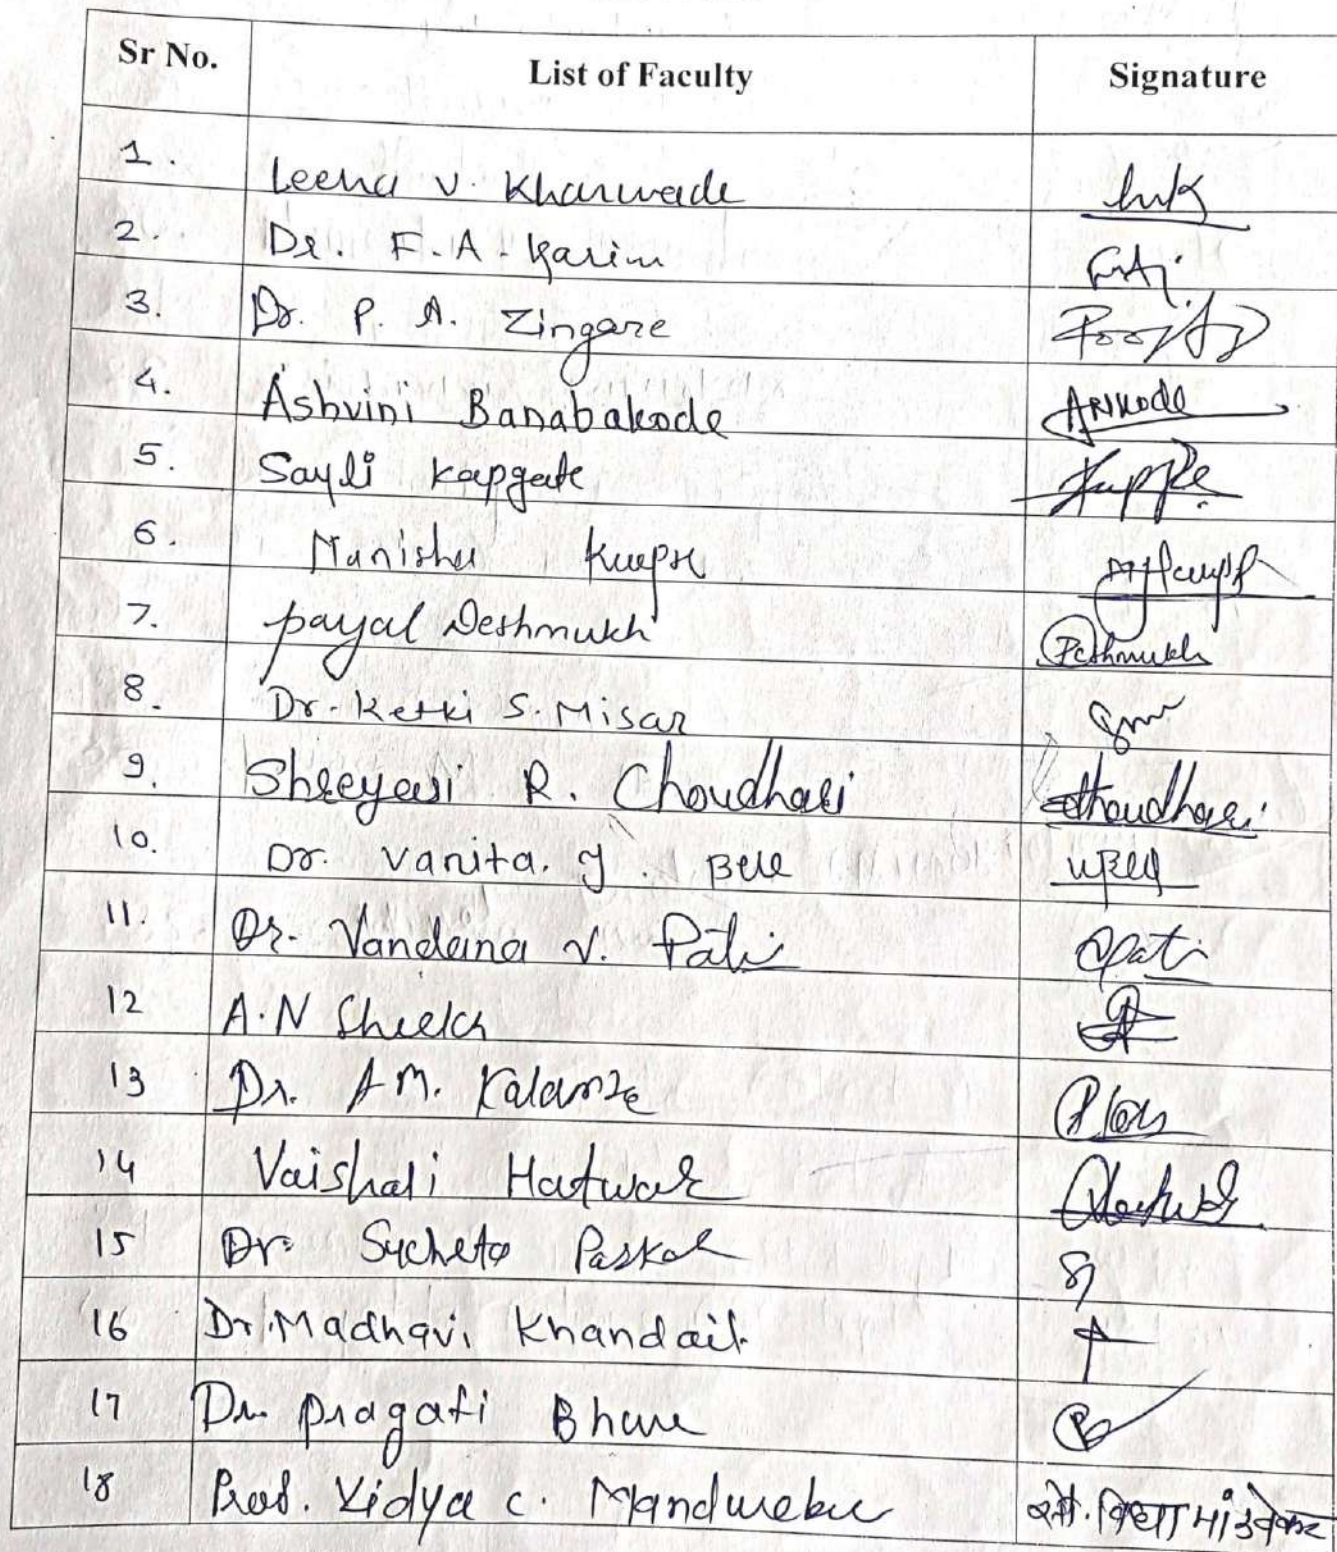 Sr No. List of Faculty Signature
1. Leena V. Kharwade
2. Dr. F. A. Karim
3. Dr. P. A. Zingare
4. Ashvini Banabakode
5. Sayli Kapgate
6. Manisha
7. payal Deshmukh Pdeshmukh
8. Dr. Ketki S. Misar
9. Shreyasi R. Choudhari Choudhari
10. Dr. Vanita. J. Bele
11. Dr. Vandana V. Pati
12 A.N Sheikh
13 Dr. A M.
14 Vaishali Hatwar
15 Dr. Sucheta
16 Dr. Madhavi Khandait
17 Dr. Pragati
18 Prof. Vidya C. Mandwekar सौ. विद्या मांडवेकर